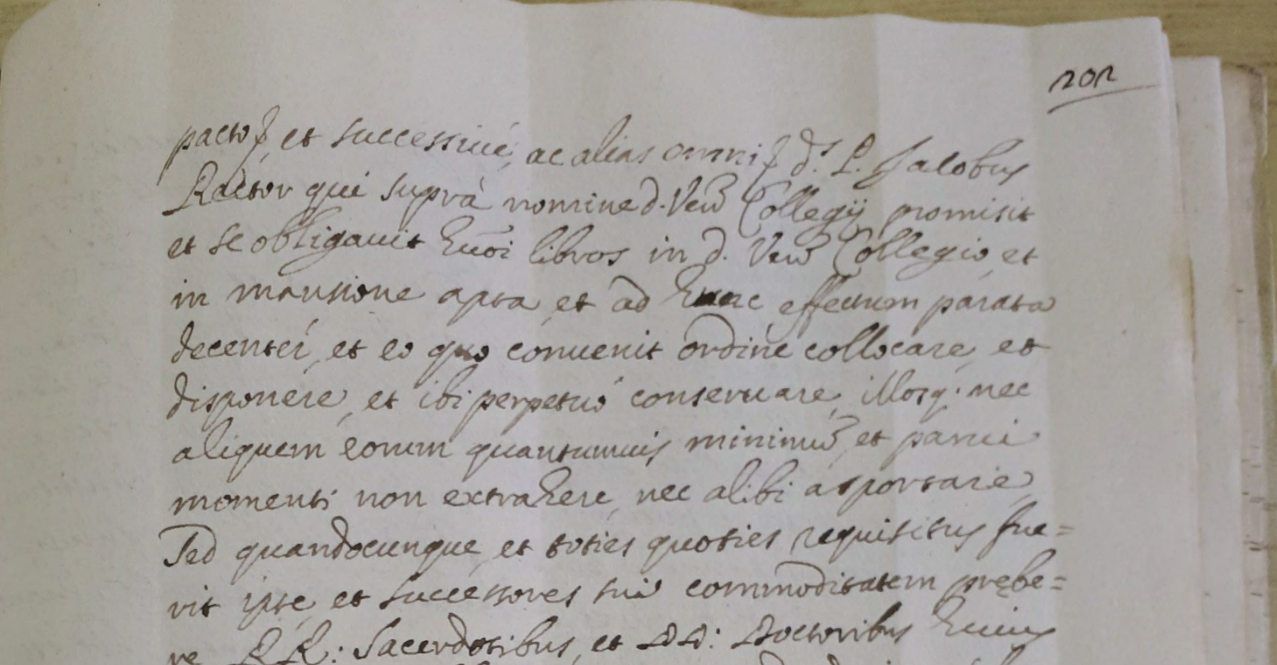 202
pacto, et successiuè, ac alias omni d.s P. Jacobus
Rector qui suprà nomine d. Ven. Collegij promisit
et se obligauit hmoi libros in d. Ven. Collegio et
in mansione apta et ad hunc effectum parata
decenter, et eo quo conuenit ordine collocare, et
disponere, et ibi perpetuò conseruare, illosq. nec
aliquem eorum quantumuis minimũ, et parui
momenti non extrahere, nec alibi asportare,
Sed quandocunque et toties quoties requisitus fue=
rit ipse, et successores sui commoditatem prębe=
re RR: Sacerdotibus, et DD: Doctoribus huius